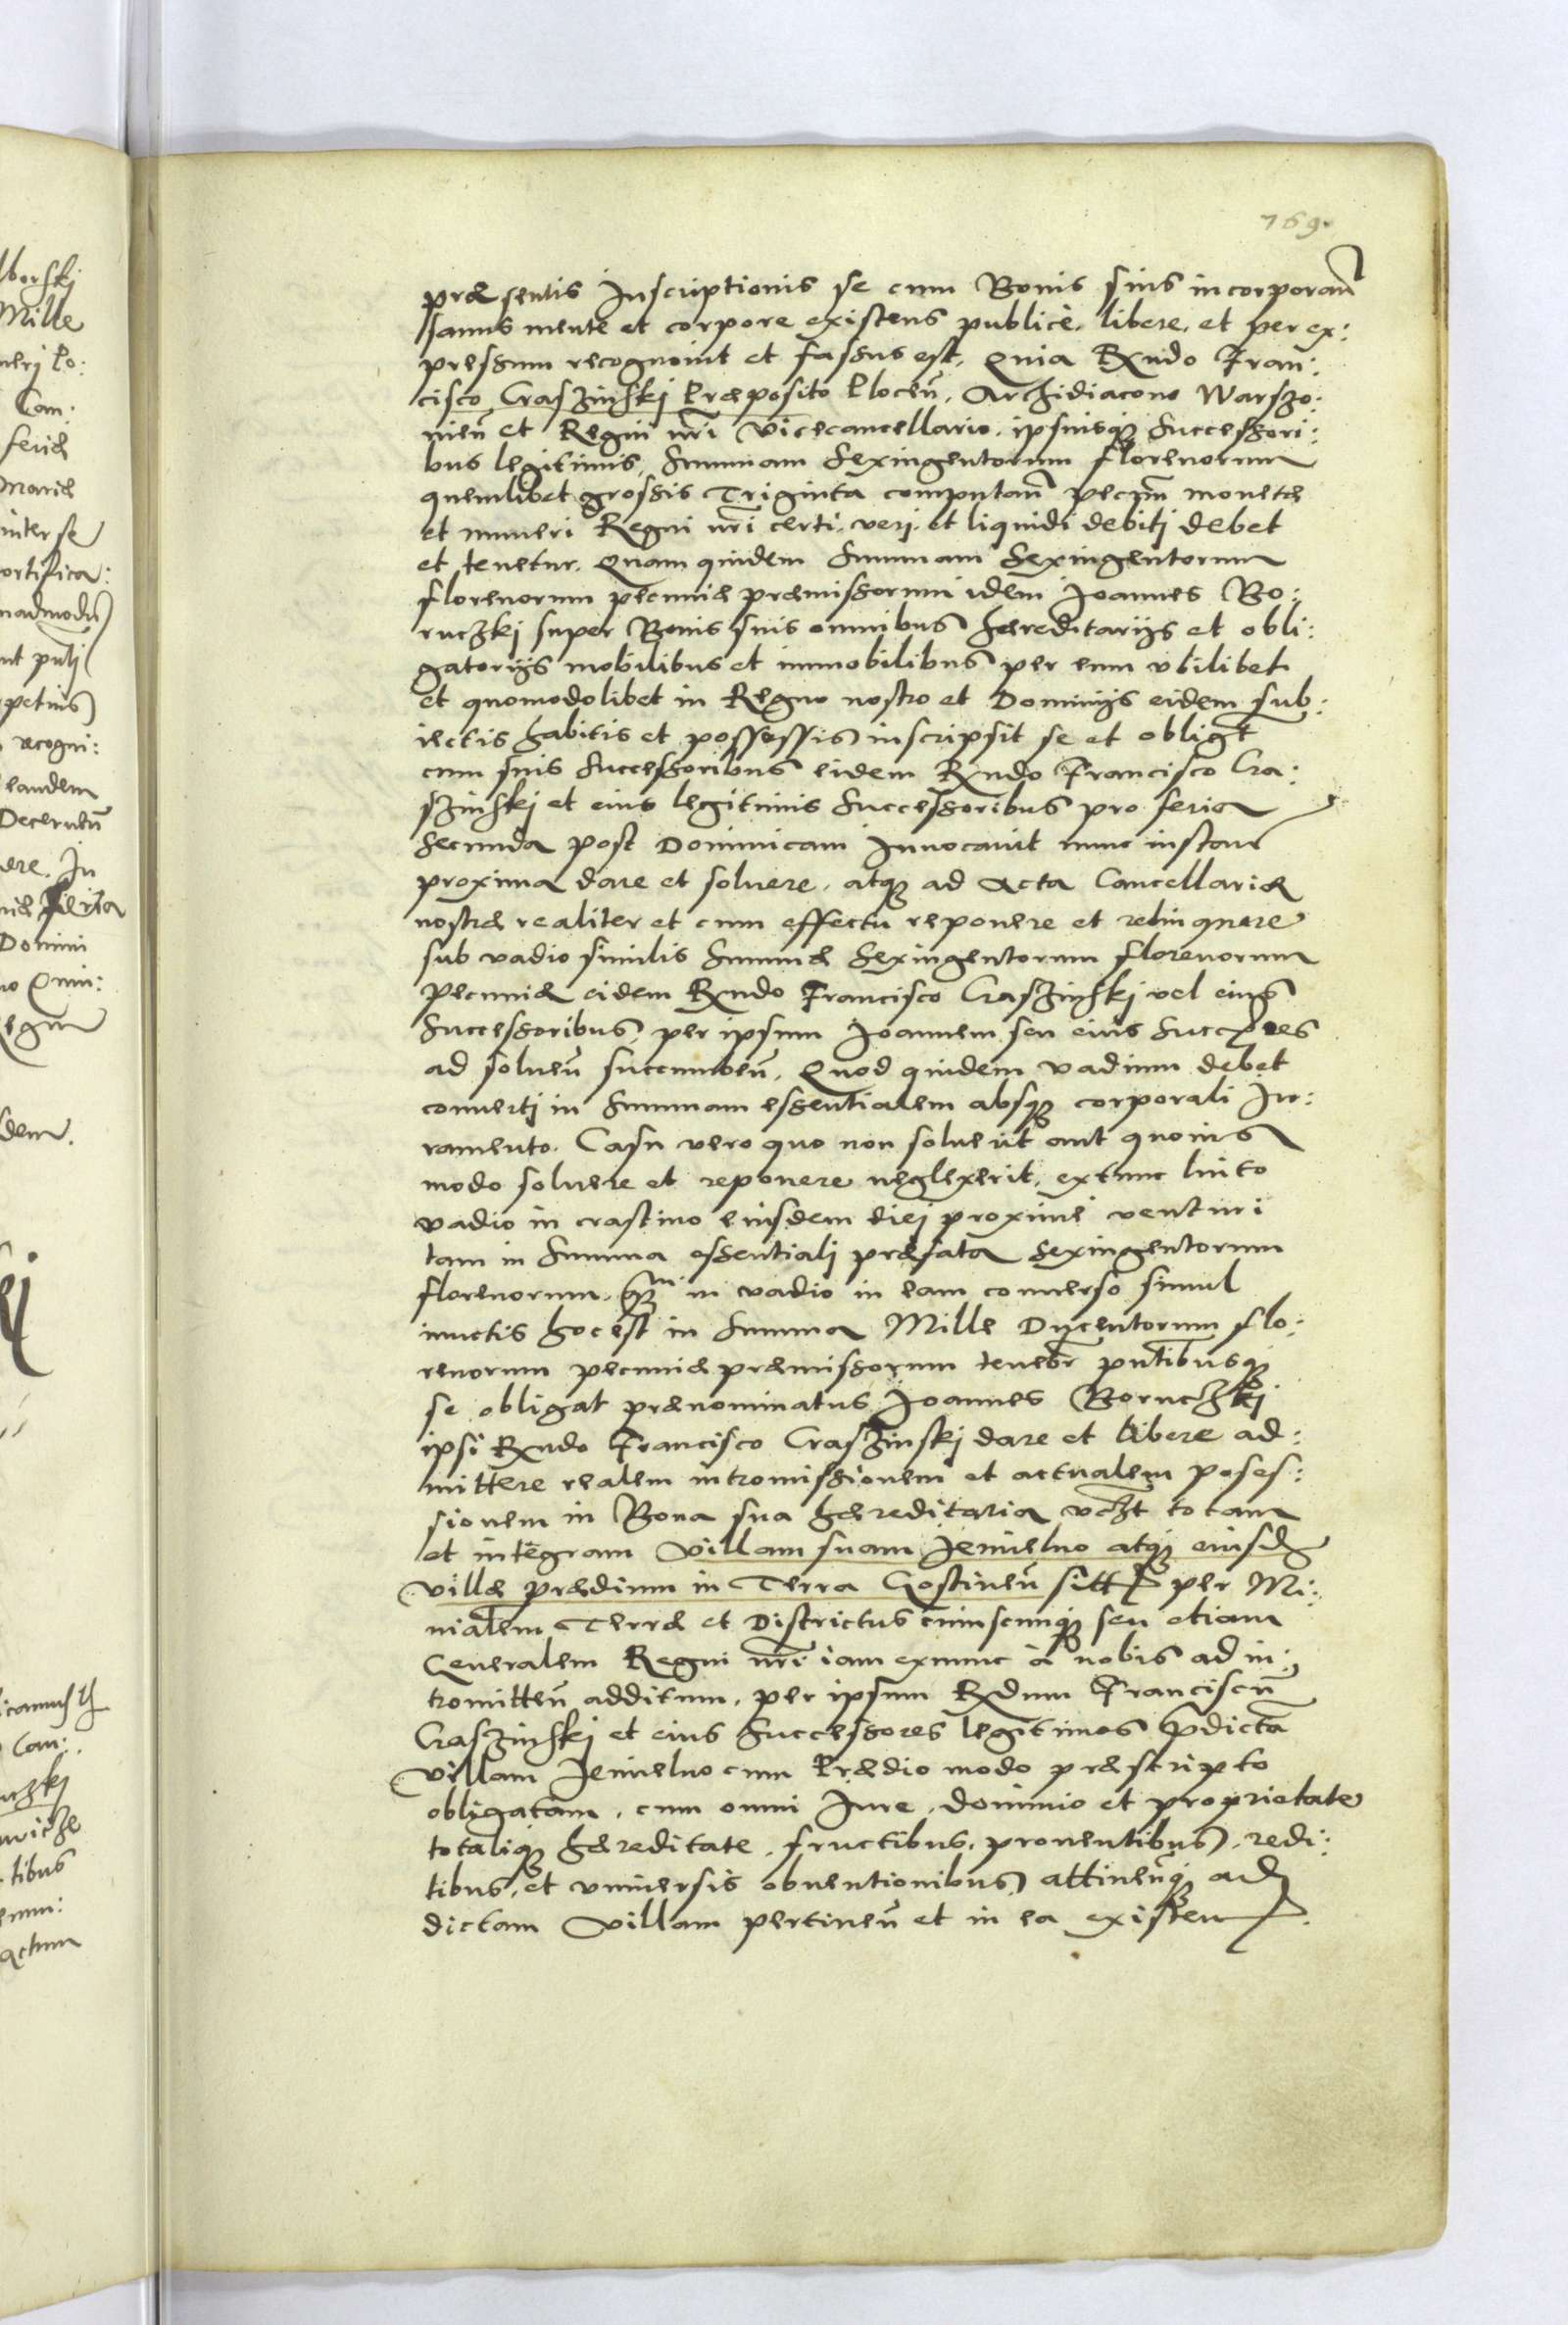 169.
præsentis Inscriptionis se cum Bonis suis incorporan̄
sanus mente et corpore existens publicè, libere, et per ex:
pressum recognouit et fassus est, Quia Rndo Fran:
cisco Craszinskj Præposito Plocen̄, Archidiacono Warszo:
uien̄ et Regni nr̄i Vicecancellario, ipsiusq3 Successori:
bus legitimis, Summam Sexingentorum florenorum
quemlibet grossis Triginta computan̄ pecun̄ monetæ
et numeri Regni nr̄i certi, verj, et liquidi debitj debet
et tenetur. Quam quidem Summam Sexingentorum
florenorum pecuniæ præmissorum idem Joannes Bo:
ruczkj super Bonis suis omnibus hæreditarijs et obli:
gatorijs mobilibus et immobilibus per eum vbilibet
et quomodolibet in Regno nostro et Dominijs eidem sub:
iectis habitis et possessis inscripsit se et obligat
cum suis Successoribus eidem Rndo Francisco Cra:
szinskj et eius legitimis Successoribus pro feria
Secunda post Dominicam Inuocauit nunc instan̄
proxima dare et soluere, atq3 ad Acta Cancellariæ
nostræ realiter et cum effectu reponere et relinquere
sub vadio similis Summæ Sexingentorum florenorum
pecuniæ eidem Rndo Francisco Craszinskj vel eius
Successoribus, per ipsum Joannem seu eius Succres
ad soluen̄ succumben̄. Quod quidem vadium debet
conuertj in Summam essentialem absq3 corporali Iu:
ramento. Casu vero quo non soluerit aut quouis
modo soluere et reponere neglexerit, extunc luito
vadio in crastino eiusdem diej proxime venturi
tam in Summa essentialj præfata Sexingentorum
florenorum, qm̄ in vadio in eam conuerso simul
iunctis hoc est in Summa Mille Ducentorum flo:
renorum pecuniæ præmissorum tenebr̄ pntibusq3
se obligat prænominatus Joannes Boruczkj
ipsi Rndo Francisco Craszinskj dare et libere ad:
mittere realem intromissionem et actualem poses:
sionem in Bona sua hæreditaria vczt totam
et integram Villam suam Jemielno atq3 eiusd
villæ prædium in Terra Gostinen̄ sitt per Mi:
nialem Terræ et Districtus cuiuscunq3 seu etiam
Generalem Regni nr̄i iam exnunc à nobis ad in:
tromitten̄ additum, per ipsum Rdum Franciscū
Craszinskj et eius Successores legitimos pdictā
Villam Jemielno cum Prædio modo præscripto
obligatam, cum omni Iure, dominio et proprietate
totaliq3 hæreditate, fructibus, prouentibus, redi:
tibus, et vniuersis obuentionibus attinen̄q3 ad
dictam Villam pertinen̄ et in ea existen